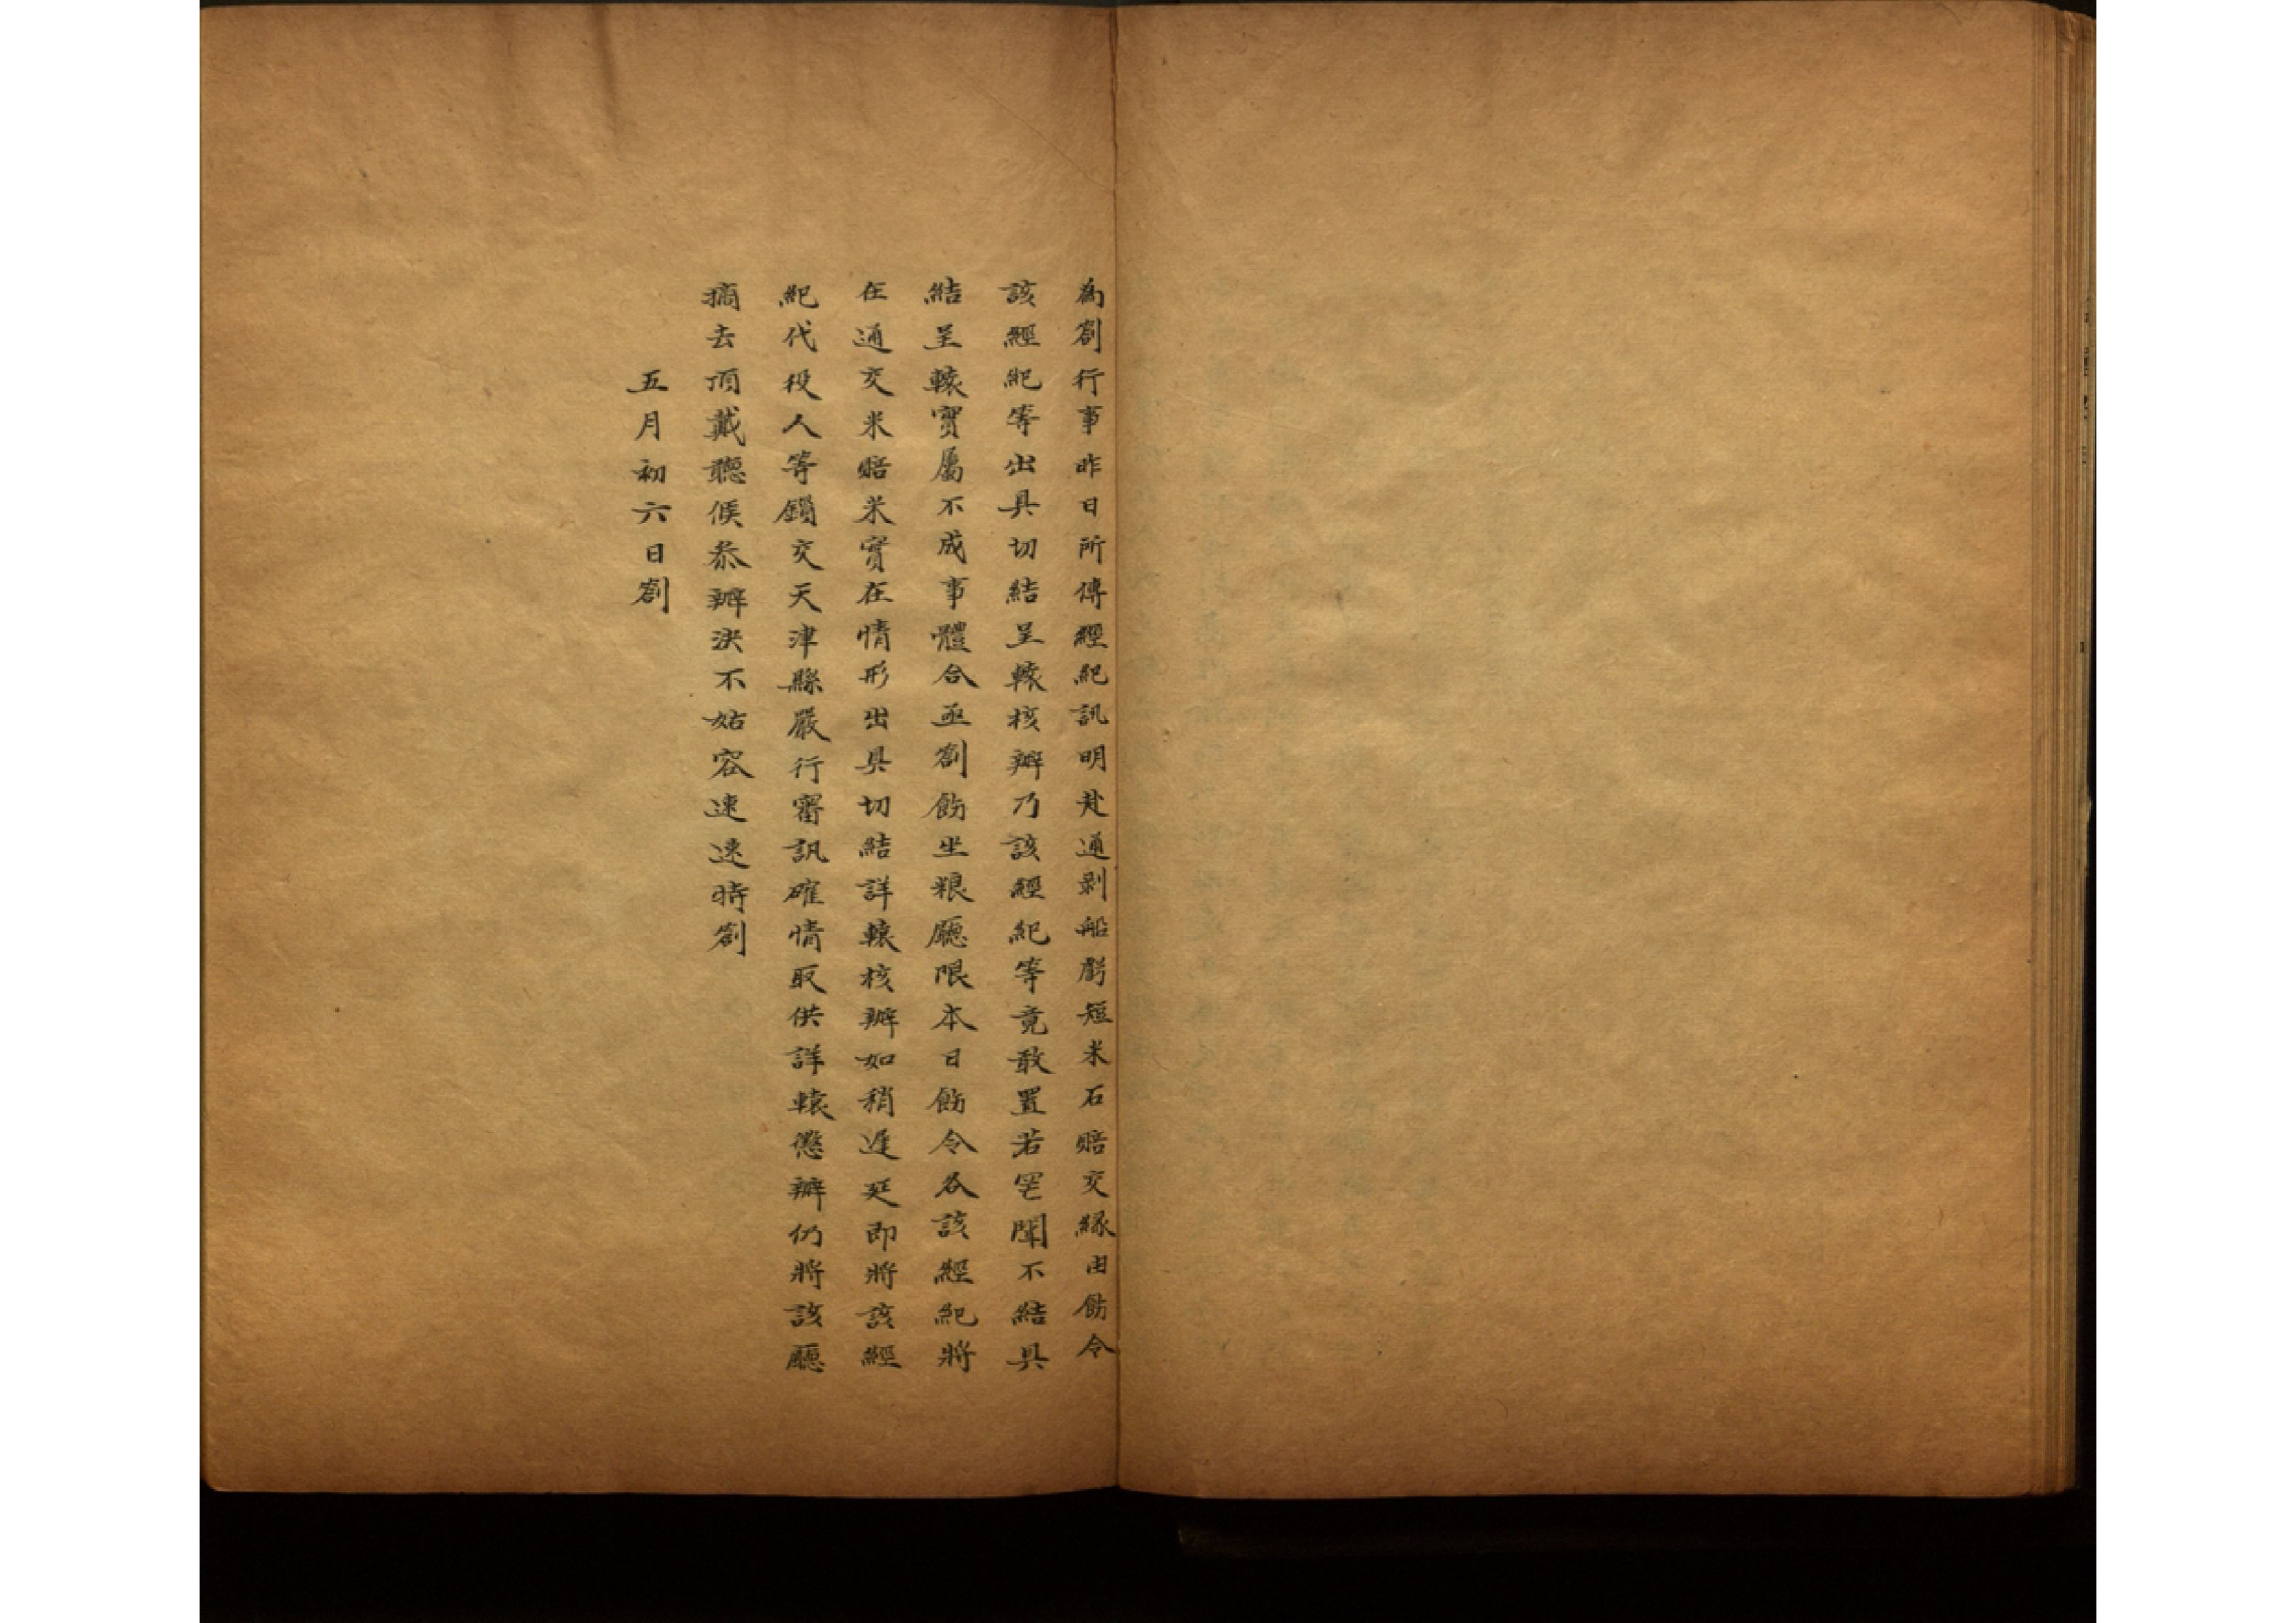 為劄行事昨日所傳經紀訊明赴通剥船虧短米石賠交緣由飭令
該經紀等出具切結呈轅核辦乃該經紀等竟敢置若罔聞不結具
結呈轅實屬不成事體合亟劄飭坐粮廳限本日飭令各該經紀將
在通交米賠米實在情形出具切結詳轅核辦如稍遲延即將該經
紀代役人等鎖交天津縣嚴行審訊確情取供詳轅懲辦仍將該廳
摘去頂戴聽候叅辦決不姑容速速時劄
五月初六日劄